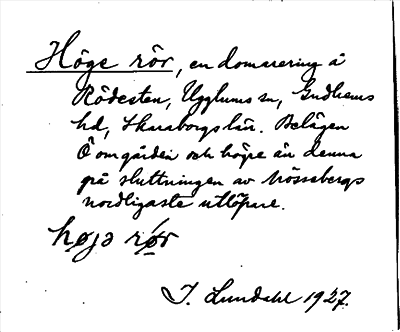 Höge rör, en domarering å
Rödesten, Ugglums sn, Gudhems
hd, Skaraborgs län. Belägen
Ö om gården och högre än denna
på sluttningen av Mössebergs
nordligaste utlöpare.
højə rør
I. Lundahl 1927.